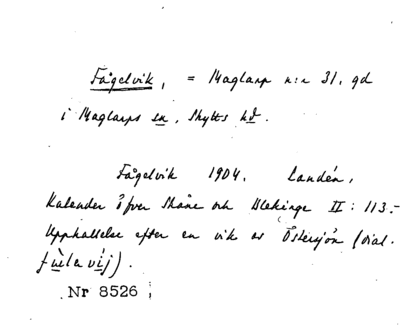 Fågelvik, = Maglarp n:r 31, gd
i Maglarps sn, Skytts hd.
Fågelvik 1904. Landén,
Kalender öfver Skåne och Blekinge II: 113.-
Uppkallelse efter en vik av Östersjön (dial.
vij).
Nr 8526